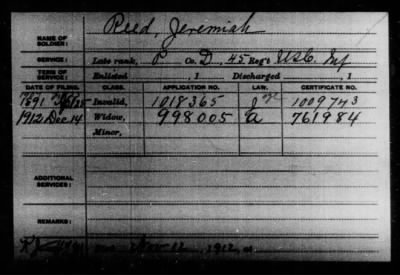 NAME OF SOLDIER: Reed, Jeremiah
SERVICE: Late rank, P Co. D, 45 Reg't U.S.C. Inf
TERM OF SERVICE: Enlisted , 1 Discharged , 1
DATE OF FILING. CLASS. APPLICATION NO. LAW. CERTIFICATE NO.
1891 Invalid, 1018365 1009743
1912 Dec 14 Widow, 998005 a 761984
Minor,
ADDITIONAL SERVICES:
REMARKS:
Nov 12, 1912, at